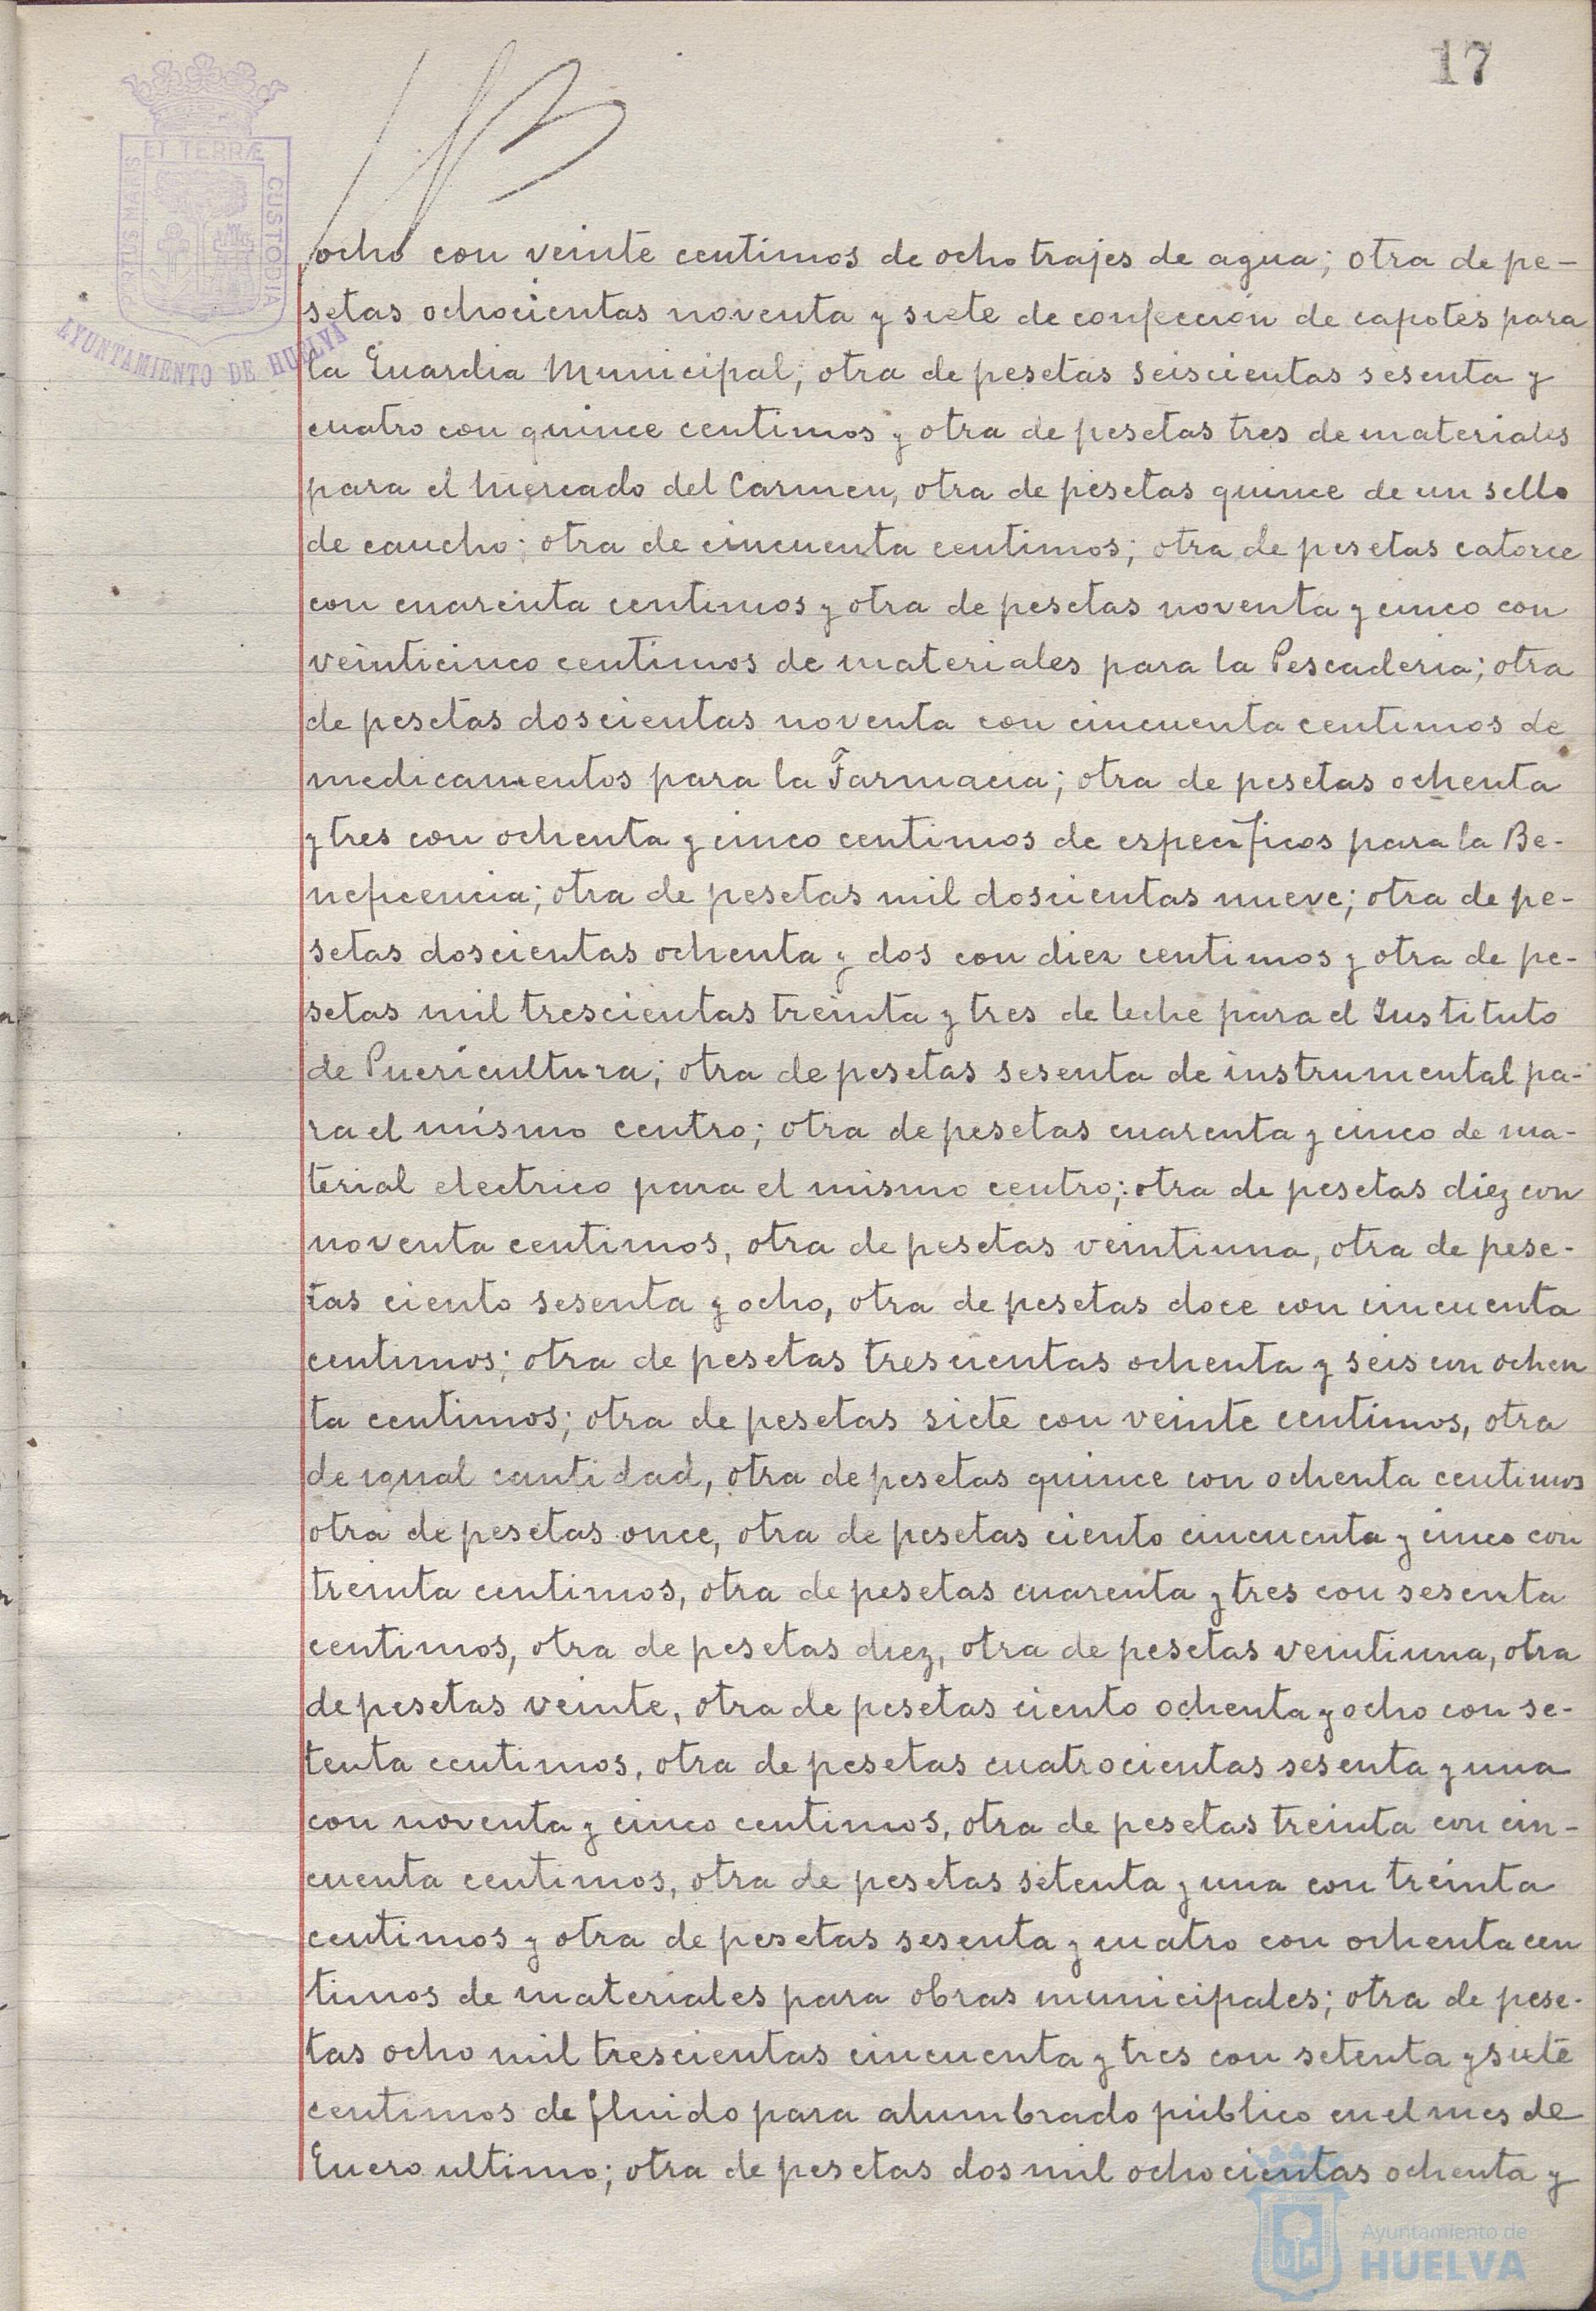 17
ET TERRÆ
PORTUS MARIS
CUSTODIA
AYUNTAMIENTO DE HUELVA
ocho con veinte centimos de ocho trajes de agua; otra de pe-
setas ochocientas noventa y siete de confección de capotes para
la Guardia Municipal; otra de pesetas seiscientas sesenta y
cuatro con quince centimos y otra de pesetas tres de materiales
para el Mercado del Carmen, otra de pesetas quince de un sello
de caucho; otra de cincuenta centimos; otra de pesetas catorce
con cuarenta centimos y otra de pesetas noventa y cinco con
veinticinco centimos de materiales para la Pescaderia; otra
de pesetas doscientas noventa con cincuenta centimos de
medicamentos para la Farmacia; otra de pesetas ochenta
y tres con ochenta y cinco centimos de específicos para la Be-
neficencia; otra de pesetas mil doscientas nueve; otra de pe-
setas doscientas ochenta y dos con diez centimos y otra de pe-
setas mil trescientas treinta y tres de leche para el Instituto
de Puericultura; otra de pesetas sesenta de instrumental pa-
ra el mismo centro; otra de pesetas cuarenta y cinco de ma-
terial electrico para el mismo centro; otra de pesetas diez con
noventa centimos, otra de pesetas veintiuna, otra de pese-
tas ciento sesenta y ocho, otra de pesetas doce con cincuenta
centimos; otra de pesetas trescientas ochenta y seis con ochen
ta centimos; otra de pesetas siete con veinte centimos, otra
de igual cantidad, otra de pesetas quince con ochenta centimos
otra de pesetas once, otra de pesetas ciento cincuenta y cinco con
treinta centimos, otra de pesetas cuarenta y tres con sesenta
centimos, otra de pesetas diez, otra de pesetas veintiuna, otra
de pesetas veinte, otra de pesetas ciento ochenta y ocho con se-
tenta centimos, otra de pesetas cuatrocientas sesenta y una
con noventa y cinco centimos, otra de pesetas treinta con cin-
cuenta centimos, otra de pesetas setenta y una con treinta
centimos y otra de pesetas sesenta y cuatro con ochenta cen
timos de materiales para obras municipales; otra de pese-
tas ocho mil trescientas cincuenta y tres con setenta y siete
centimos de fluido para alumbrado público en el mes de
Enero ultimo; otra de pesetas dos mil ochocientas ochenta y
Ayuntamiento de
HUELVA